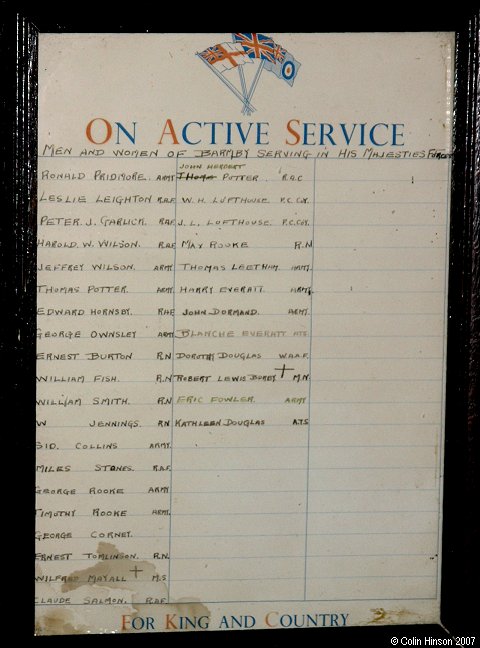 ON ACTIVE SERVICE
MEN AND WOMEN OF BARMBY SERVING IN HIS MAJESTIES FORCES
RONALD PRIDMORE. ARMY
LESLIE LEIGHTON R.A.F.
PETER. J. GARLICK. R.A.F.
HAROLD. W. WILSON. R.A.F.
JEFFREY WILSON. ARMY
THOMAS POTTER. ARMY.
EDWARD HORNSBY. R.A.F.
GEORGE OWNSLEY ARMY
ERNEST BURTON R.N
WILLIAM FISH. R.N
WILLIAM SMITH. R.N
W JENNINGS. R.N
SID. COLLINS ARMY.
MILES STONES. R.A.F.
GEORGE ROOKE ARMY
TIMOTHY ROOKE ARMY.
GEORGE CORNEY.
ERNEST TOMLINSON. R.N.
WILFRED MAYALL + M.S
CLAUDE SALMON. R.A.F.
JOHN HERBERT
POTTER. R.A.C
W.H. LOFTHOUSE. P.C. COY.
J.L. LOFTHOUSE. P.C. COY.
MAX ROOKE R.N
THOMAS LEETHAM. ARMY.
HARRY EVERATT. ARMY.
JOHN DORMAND. ARMY.
BLANCHE EVERATT ATS.
DOROTHY DOUGLAS W.A.A.F.
ROBERT LEWIS + M.N.
ERIC FOWLER. ARMY
KATHLEEN DOUGLAS A.T.S
FOR KING AND COUNTRY
© Colin Hinson 2007